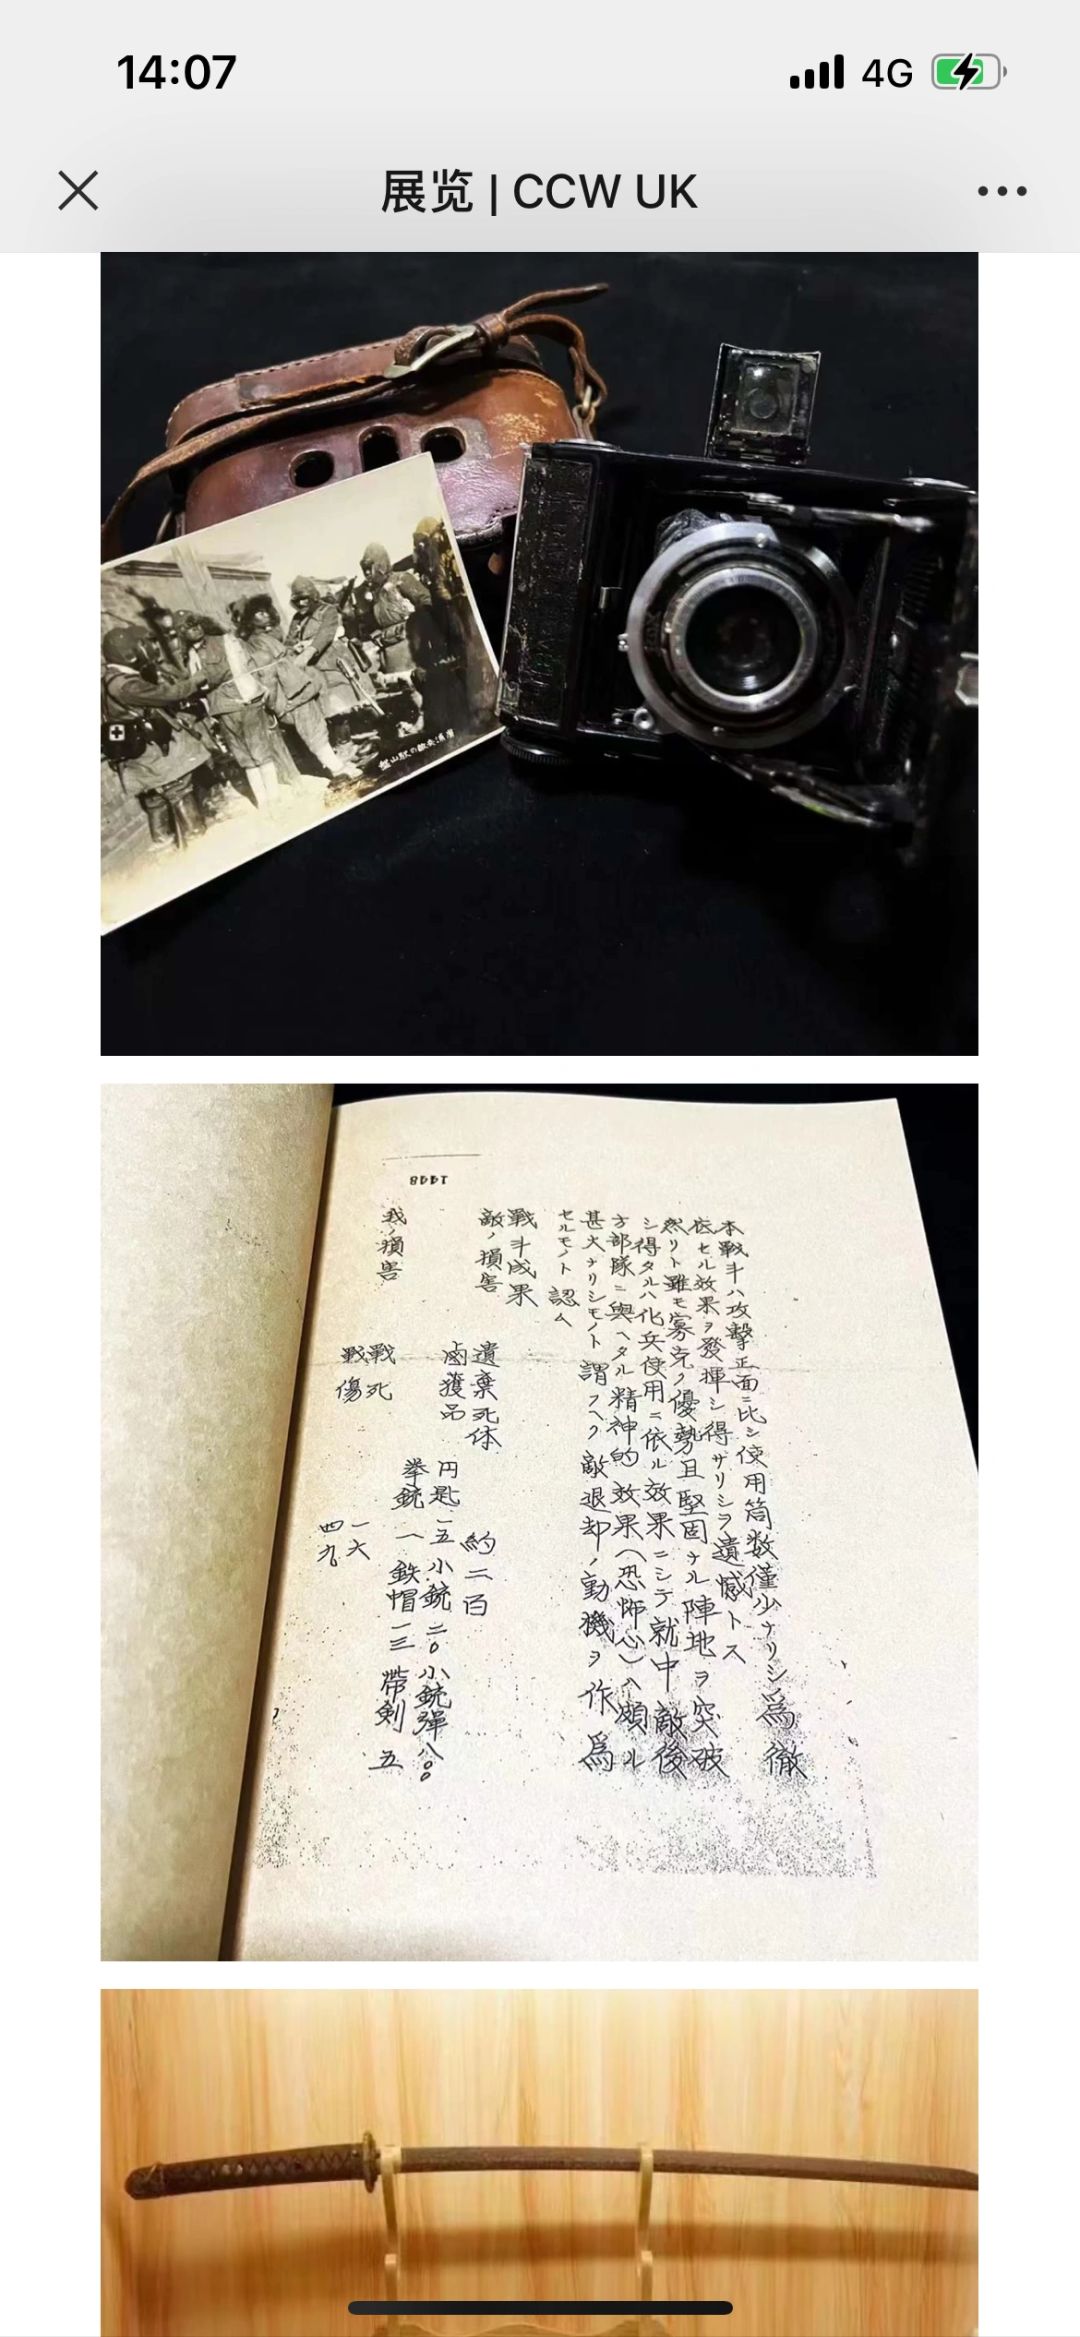 14:07
4G
展览 | CCW UK
盤山駅の敵兵
1448
本戰斗ハ攻擊正面ニ比シ使用筒数僅少ナリシ為徹
底セル效果ヲ發揮シ得サリシヲ遺憾トス
然リト雖モ寡克ク優勢且堅固ナル陣地ヲ突破
シ得タルハ化兵使用ニ依ル效果ニシテ就中敵後
方部隊ニ與ヘタル精神的效果(恐怖心)ハ頗ル
甚大ナリシモノト謂フヘク敵退却ノ動機ヲ作為
セルモノト認ム
戰斗成果
敵ノ損害
遺棄死体 約二百
鹵獲品 円匙 一五 小銃 二〇 小銃彈 八〇〇
拳銃 一 鉄帽 一三 帯剣 五
我ノ損害
戰死 一六
戰傷 四九